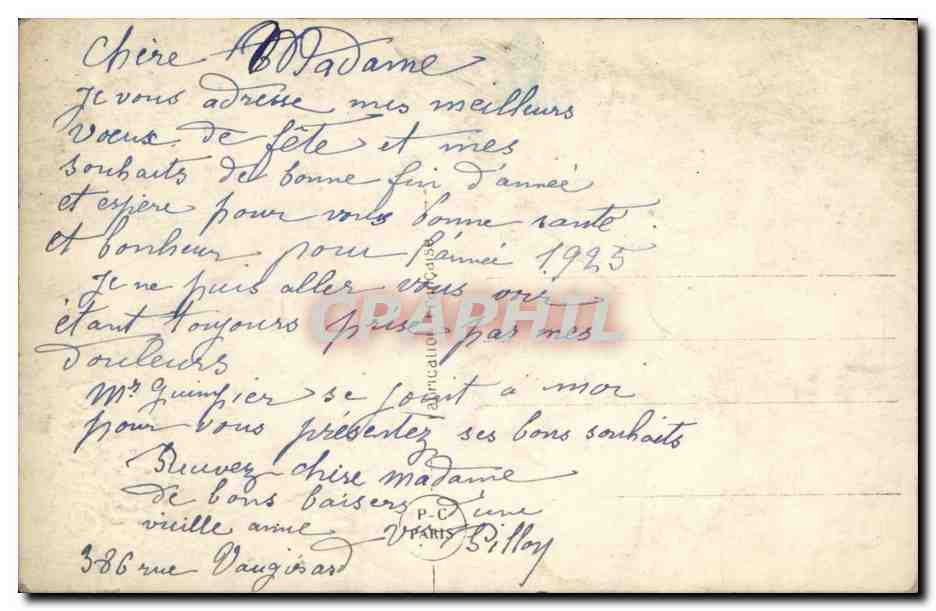 Chère Madame
Je vous adresse mes meilleurs
vœux de fête et mes
souhaits de bonne fin d'année
et espère pour vous bonne santé
et bonheur pour l'année 1925
Je ne puis aller vous voir
étant toujours prise par mes
douleurs
Mr Guimpier se joint à moi
pour vous présentez ses bons souhaits
Recevez chère madame
de bons baisers d'une
vieille amie Vve Pilloy
386 rue Vaugirard
Fabrication Française
P-C
PARIS
CPAPHIL